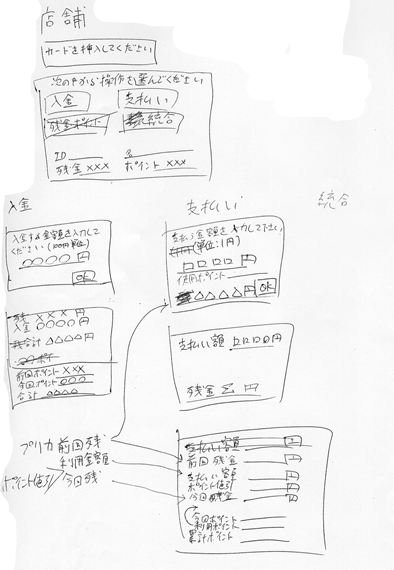 店舗
カードを挿入してください
次の中から操作を選んでください
入金 支払い
残金ポイント 統合
ID 名
残金 xxx ポイント xxx
入金
入金する金額を入力して
ください (100円単位)
〇〇〇〇 円
OK
残 xxx円
入金 〇〇〇〇円
合計 △△△△円
前回ポイント xxx
今回ポイント 〇〇〇
合計 △△△△
支払い
支払う金額を入力して下さい
(単位:1円)
□□□□ 円
使用ポイント
△△△△△円 OK
支払い額 □□□□円
残金 Σ 円
統合
プリカ 前回残
利用金額
ポイント値引
今回残
支払い金額 円
前回残金 円
支払い金額 円
ポイント値引 円
今回残金 円
今回ポイント
利用ポイント
累計ポイント